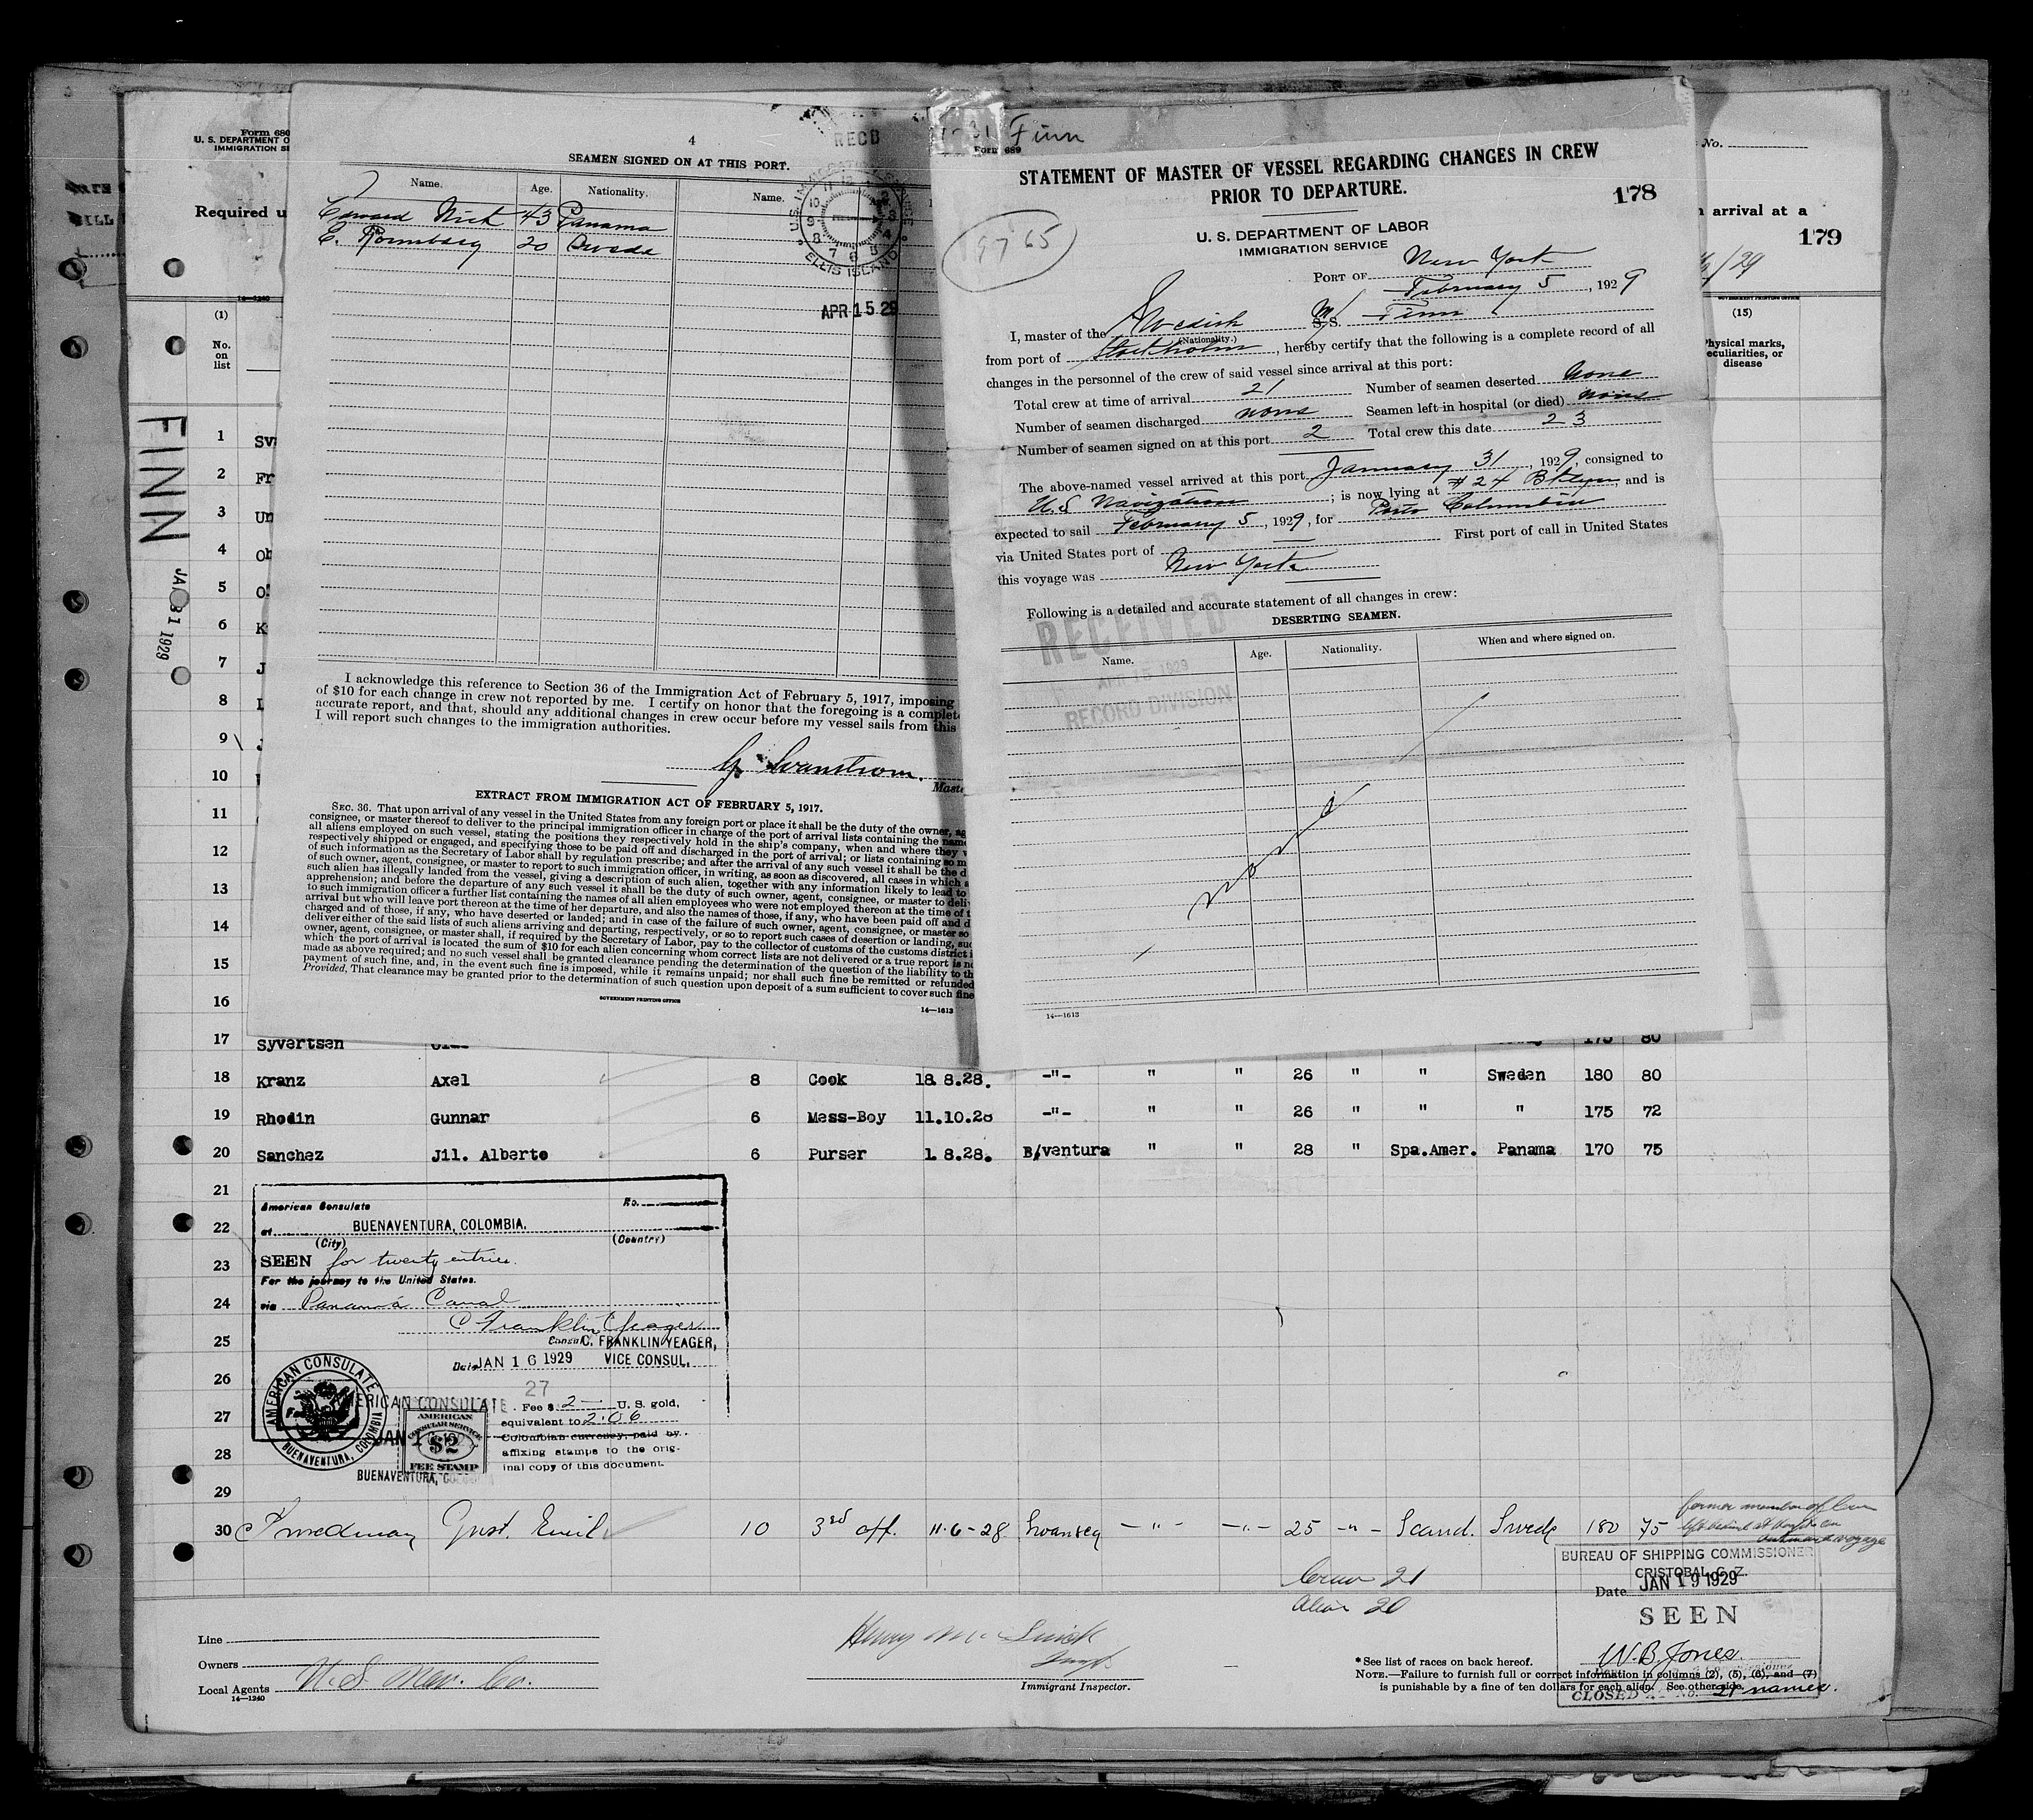 Form 680
U. S. DEPARTMENT O
IMMIGRATION SE
Required u
14—1240
(1)
No.
on
list
FINN
JA 31 1929
4
SEAMEN SIGNED ON AT THIS PORT.
Name. Age. Nationality. Name.
Edward Nick 43 Panama
E. 20 Swede
RECD
U.S. IMMIGRATION SERVICE
ELLIS ISLAND
APR 15 29
I acknowledge this reference to Section 36 of the Immigration Act of February 5, 1917, imposing
of $10 for each change in crew not reported by me. I certify on honor that the foregoing is a complete
accurate report, and that, should any additional changes in crew occur before my vessel sails from this
I will report such changes to the immigration authorities.
Svanstrom.
Maste
EXTRACT FROM IMMIGRATION ACT OF FEBRUARY 5, 1917.
SEC. 36. That upon arrival of any vessel in the United States from any foreign port or place it shall be the duty of the owner, ag
consignee, or master thereof to deliver to the principal immigration officer in charge of the port of arrival lists containing the name
all aliens employed on such vessel, stating the positions they respectively hold in the ship's company, when and where they w
respectively shipped or engaged, and specifying those to be paid off and discharged in the port of arrival; or lists containing so m
of such information as the Secretary of Labor shall by regulation prescribe; and after the arrival of any such vessel it shall be the d
of such owner, agent, consignee, or master to report to such immigration officer, in writing, as soon as discovered, all cases in which a
such alien has illegally landed from the vessel, giving a description of such alien, together with any information likely to lead to
apprehension; and before the departure of any such vessel it shall be the duty of such owner, agent, consignee, or master to deliv
to such immigration officer a further list containing the names of all alien employees who were not employed thereon at the time of t
arrival but who will leave port thereon at the time of her departure, and also the names of those, if any, who have been paid off and d
charged and of those, if any, who have deserted or landed; and in case of the failure of such owner, agent, consignee, or master so
deliver either of the said lists of such aliens arriving and departing, respectively, or so to report such cases of desertion or landing, suc
owner, agent, consignee, or master shall, if required by the Secretary of Labor, pay to the collector of customs of the customs district i
which the port of arrival is located the sum of $10 for each alien concerning whom correct lists are not delivered or a true report is no
made as above required; and no vessel shall be granted clearance pending the determination of the question of the liability to th
payment of such fine, and, in the event such fine is imposed, while it remains unpaid; nor shall such fine be remitted or refunded
Provided, That clearance may be granted prior to the determination of such question upon deposit of a sum sufficient to cover such fine
GOVERNMENT PRINTING OFFICE
14—1613
Finn
Form 689
STATEMENT OF MASTER OF VESSEL REGARDING CHANGES IN CREW
PRIOR TO DEPARTURE.
178
U. S. DEPARTMENT OF LABOR
IMMIGRATION SERVICE
PORT OF New York
February 5, 1929
I, master of the Swedish M/ S.S. Finn
(Nationality.)
from port of Stockholm, hereby certify that the following is a complete record of all
changes in the personnel of the crew of said vessel since arrival at this port:
Total crew at time of arrival 21 Number of seamen deserted None
Number of seamen discharged none Seamen left in hospital (or died) none
Number of seamen signed on at this port 2 Total crew this date 23
The above-named vessel arrived at this port January 31, 1929, consigned to
U.S Navigation; is now lying at #24 Bklyn, and is
expected to sail February 5, 1929, for Porto Columbia
via United States port of First port of call in United States
this voyage was New York
Following is a detailed and accurate statement of all changes in crew:
RECEIVED
APR 15 1929
RECORD DIVISION
DESERTING SEAMEN.
Name. Age. Nationality. When and where signed on.
none
14—1613
No.
n arrival at a
179
/29
GOVERNMENT PRINTING OFFICE
(15)
Physical marks,
peculiarities, or
disease
1 Sv
2 Fr
3 Un
4
5
6 K
7 J
8
9
10
11
12
13
14
15
16
17 Syvertsen 175 80
18 Kranz Axel 8 Cook 18.8.28. -"- " " 26 " " Sweden 180 80
19 Rhodin Gunnar 6 Mess-Boy 11.10.28 -"- " " 26 " " " 175 72
20 Sanchez Jil. Alberto 6 Purser 1.8.28. B/ventura " " 28 " Spa.Amer. Panama 170 75
21
22
23
24
25
26
27
28
29
American Consulate No.
at BUENAVENTURA, COLOMBIA.
(City) (Country)
SEEN for twenty entries.
For the journey to the United States.
via Panamá Canal
C Franklin Yeager
Consul C. FRANKLIN YEAGER,
Date JAN 16 1929 VICE CONSUL.
27
AMERICAN CONSULATE
BUENAVENTURA, COLOMBIA
AMERICAN CONSULATE
Fee $ 2— U. S. gold,
equivalent to 2.06
Colombian currency, paid by
affixing stamps to the orig-
inal copy of this document.
AMERICAN
CONSULAR SERVICE
$2
FEE STAMP
BUENAVENTURA, C
30 Gust. Emil 10 3rd off. 11-6-28 Swansea -"- -"- 25 -"- Scand. Swede 180 75
former member of Crew
outward voyage
Crew 21
Alien 20
BUREAU OF SHIPPING COMMISSIONER
CRISTOBAL, C. Z.
Date JAN 19 1929
SEEN
W.B. Jones
CLOSED No. 21 names.
Line
Owners
Local Agents U.S. Nav. Co.
14—1240
Immigrant Inspector.
* See list of races on back hereof.
NOTE.—Failure to furnish full or correct information in columns (2), (5), (6), and (7)
is punishable by a fine of ten dollars for each alien. See other side.